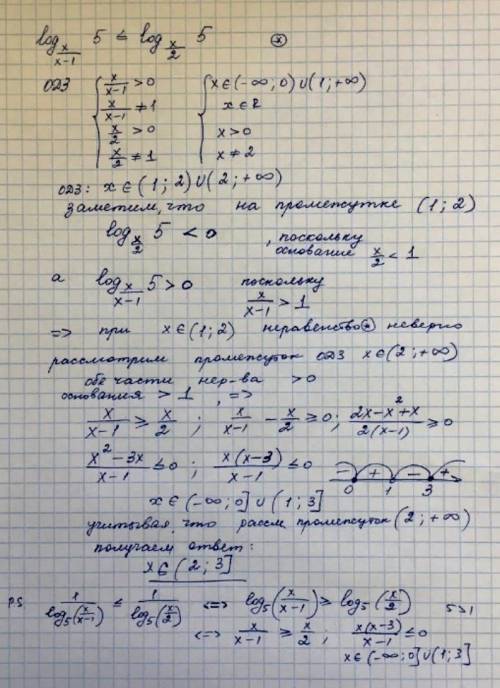 log_{x/(x-1)} 5 ≤ log_{x/2} 5 ⊛
ОДЗ { x/(x-1) > 0 { x∈(-∞; 0)∪(1; +∞)
x/(x-1) ≠ 1 x∈R
x/2 > 0 x > 0
x/2 ≠ 1 x ≠ 2
ОДЗ: x∈(1; 2)∪(2; +∞)
Заметим, что на промежутке (1; 2)
log_{x/2} 5 < 0 , поскольку основание x/2 < 1
а log_{x/(x-1)} 5 > 0 поскольку x/(x-1) > 1
=> при x∈(1; 2) неравенство ⊛ неверно
рассмотрим промежуток ОДЗ x∈(2; +∞)
обе части нер-ва > 0
основания > 1 , =>
x/(x-1) ≥ x/2 ; x/(x-1) - x/2 ≥ 0 ; (2x-x²+x)/(2(x-1)) ≥ 0
(x²-3x)/(x-1) ≤ 0 ; x(x-3)/(x-1) ≤ 0 - + - +
0 1 3
x∈(-∞; 0]∪(1; 3]
учитывая, что рассм. промежуток (2; +∞)
получаем ответ:
x∈(2; 3]
P.S 1/log₅(x/(x-1)) ≤ 1/log₅(x/2) <=> log₅(x/(x-1)) ≥ log₅(x/2) 5>1
<=> x/(x-1) ≥ x/2 ; x(x-3)/(x-1) ≤ 0
x∈(-∞; 0]∪(1; 3]